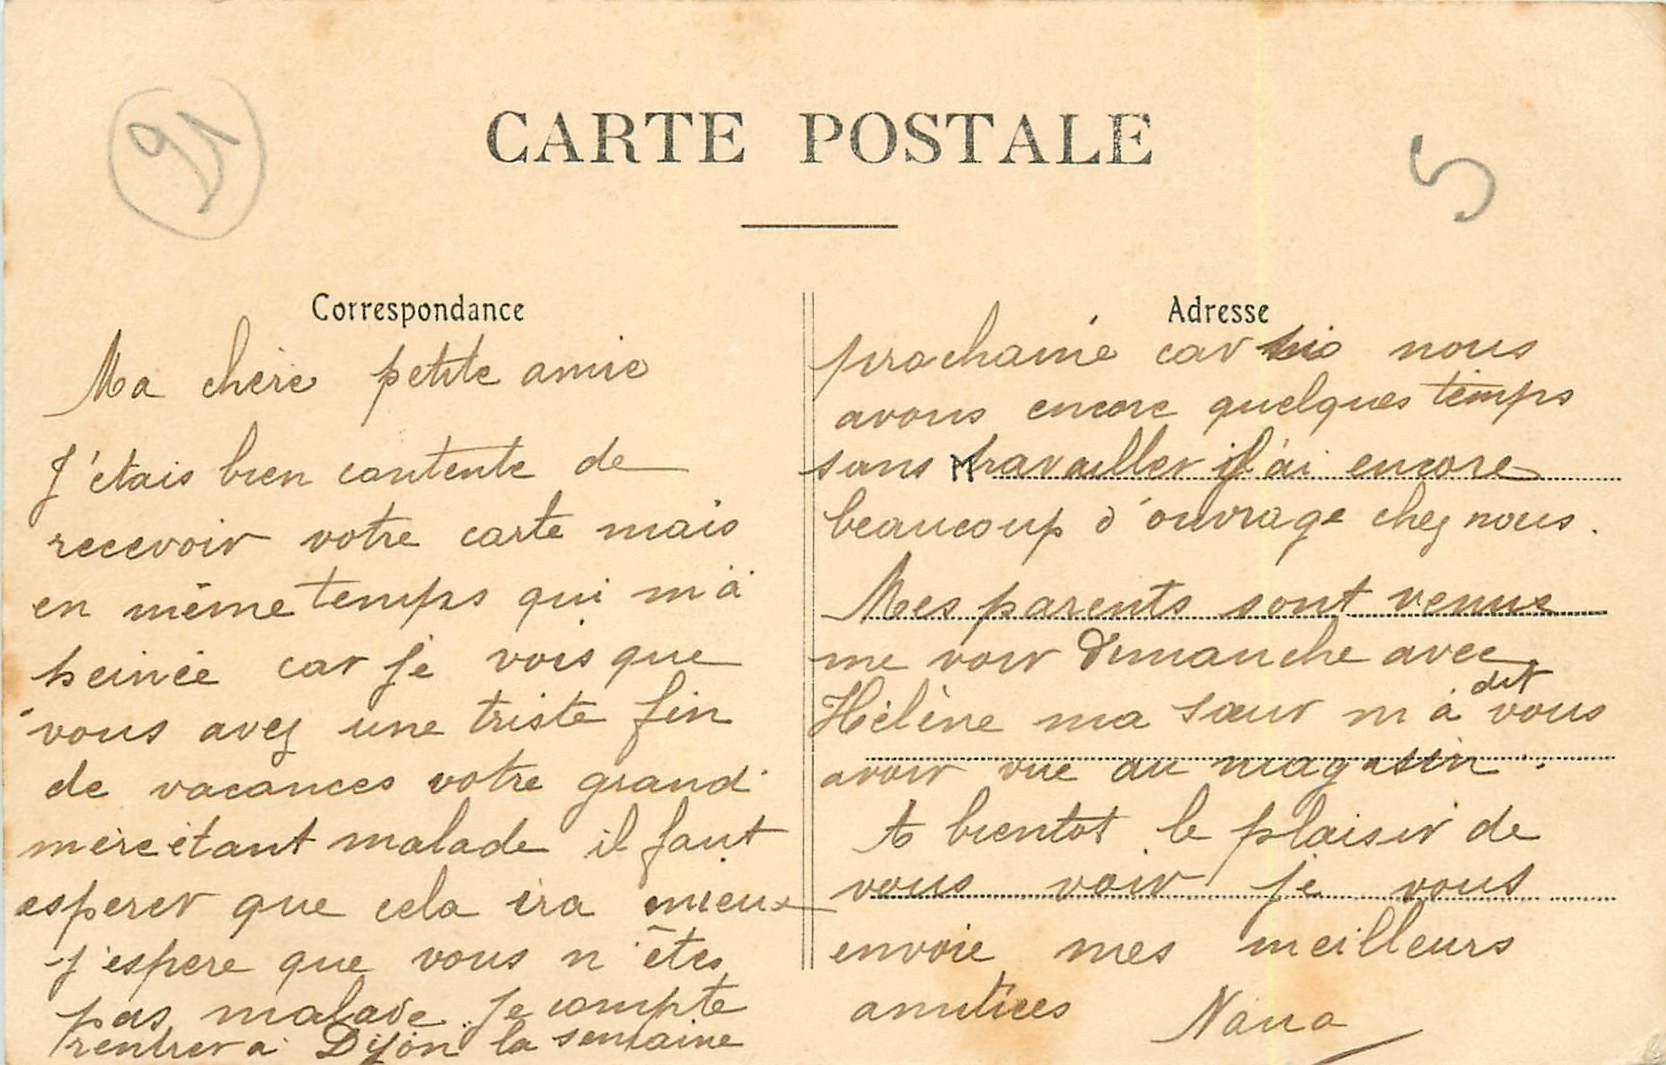 91
CARTE POSTALE
5
Correspondance
Ma chère petite amie
J'étais bien contente de
recevoir votre carte mais
en même temps qui m'a
peinée car je vois que
vous avez une triste fin
de vacances votre grand
mère étant malade il faut
esperer que cela ira mieux
j'espere que vous n'êtes
pas malade. Je compte
rentrer a Dijon la semaine
Adresse
prochaine car nous
avons encore quelques temps
sans travailler j'ai encore
beaucoup d'ouvrage chez nous.
Mes parents sont venus
me voir Dimanche avec
Hélène ma sœur m'a dit vous
avoir vue au magasin.
A bientot le plaisir de
vous voir je vous
envoie mes meilleurs
amitiées Nana
M